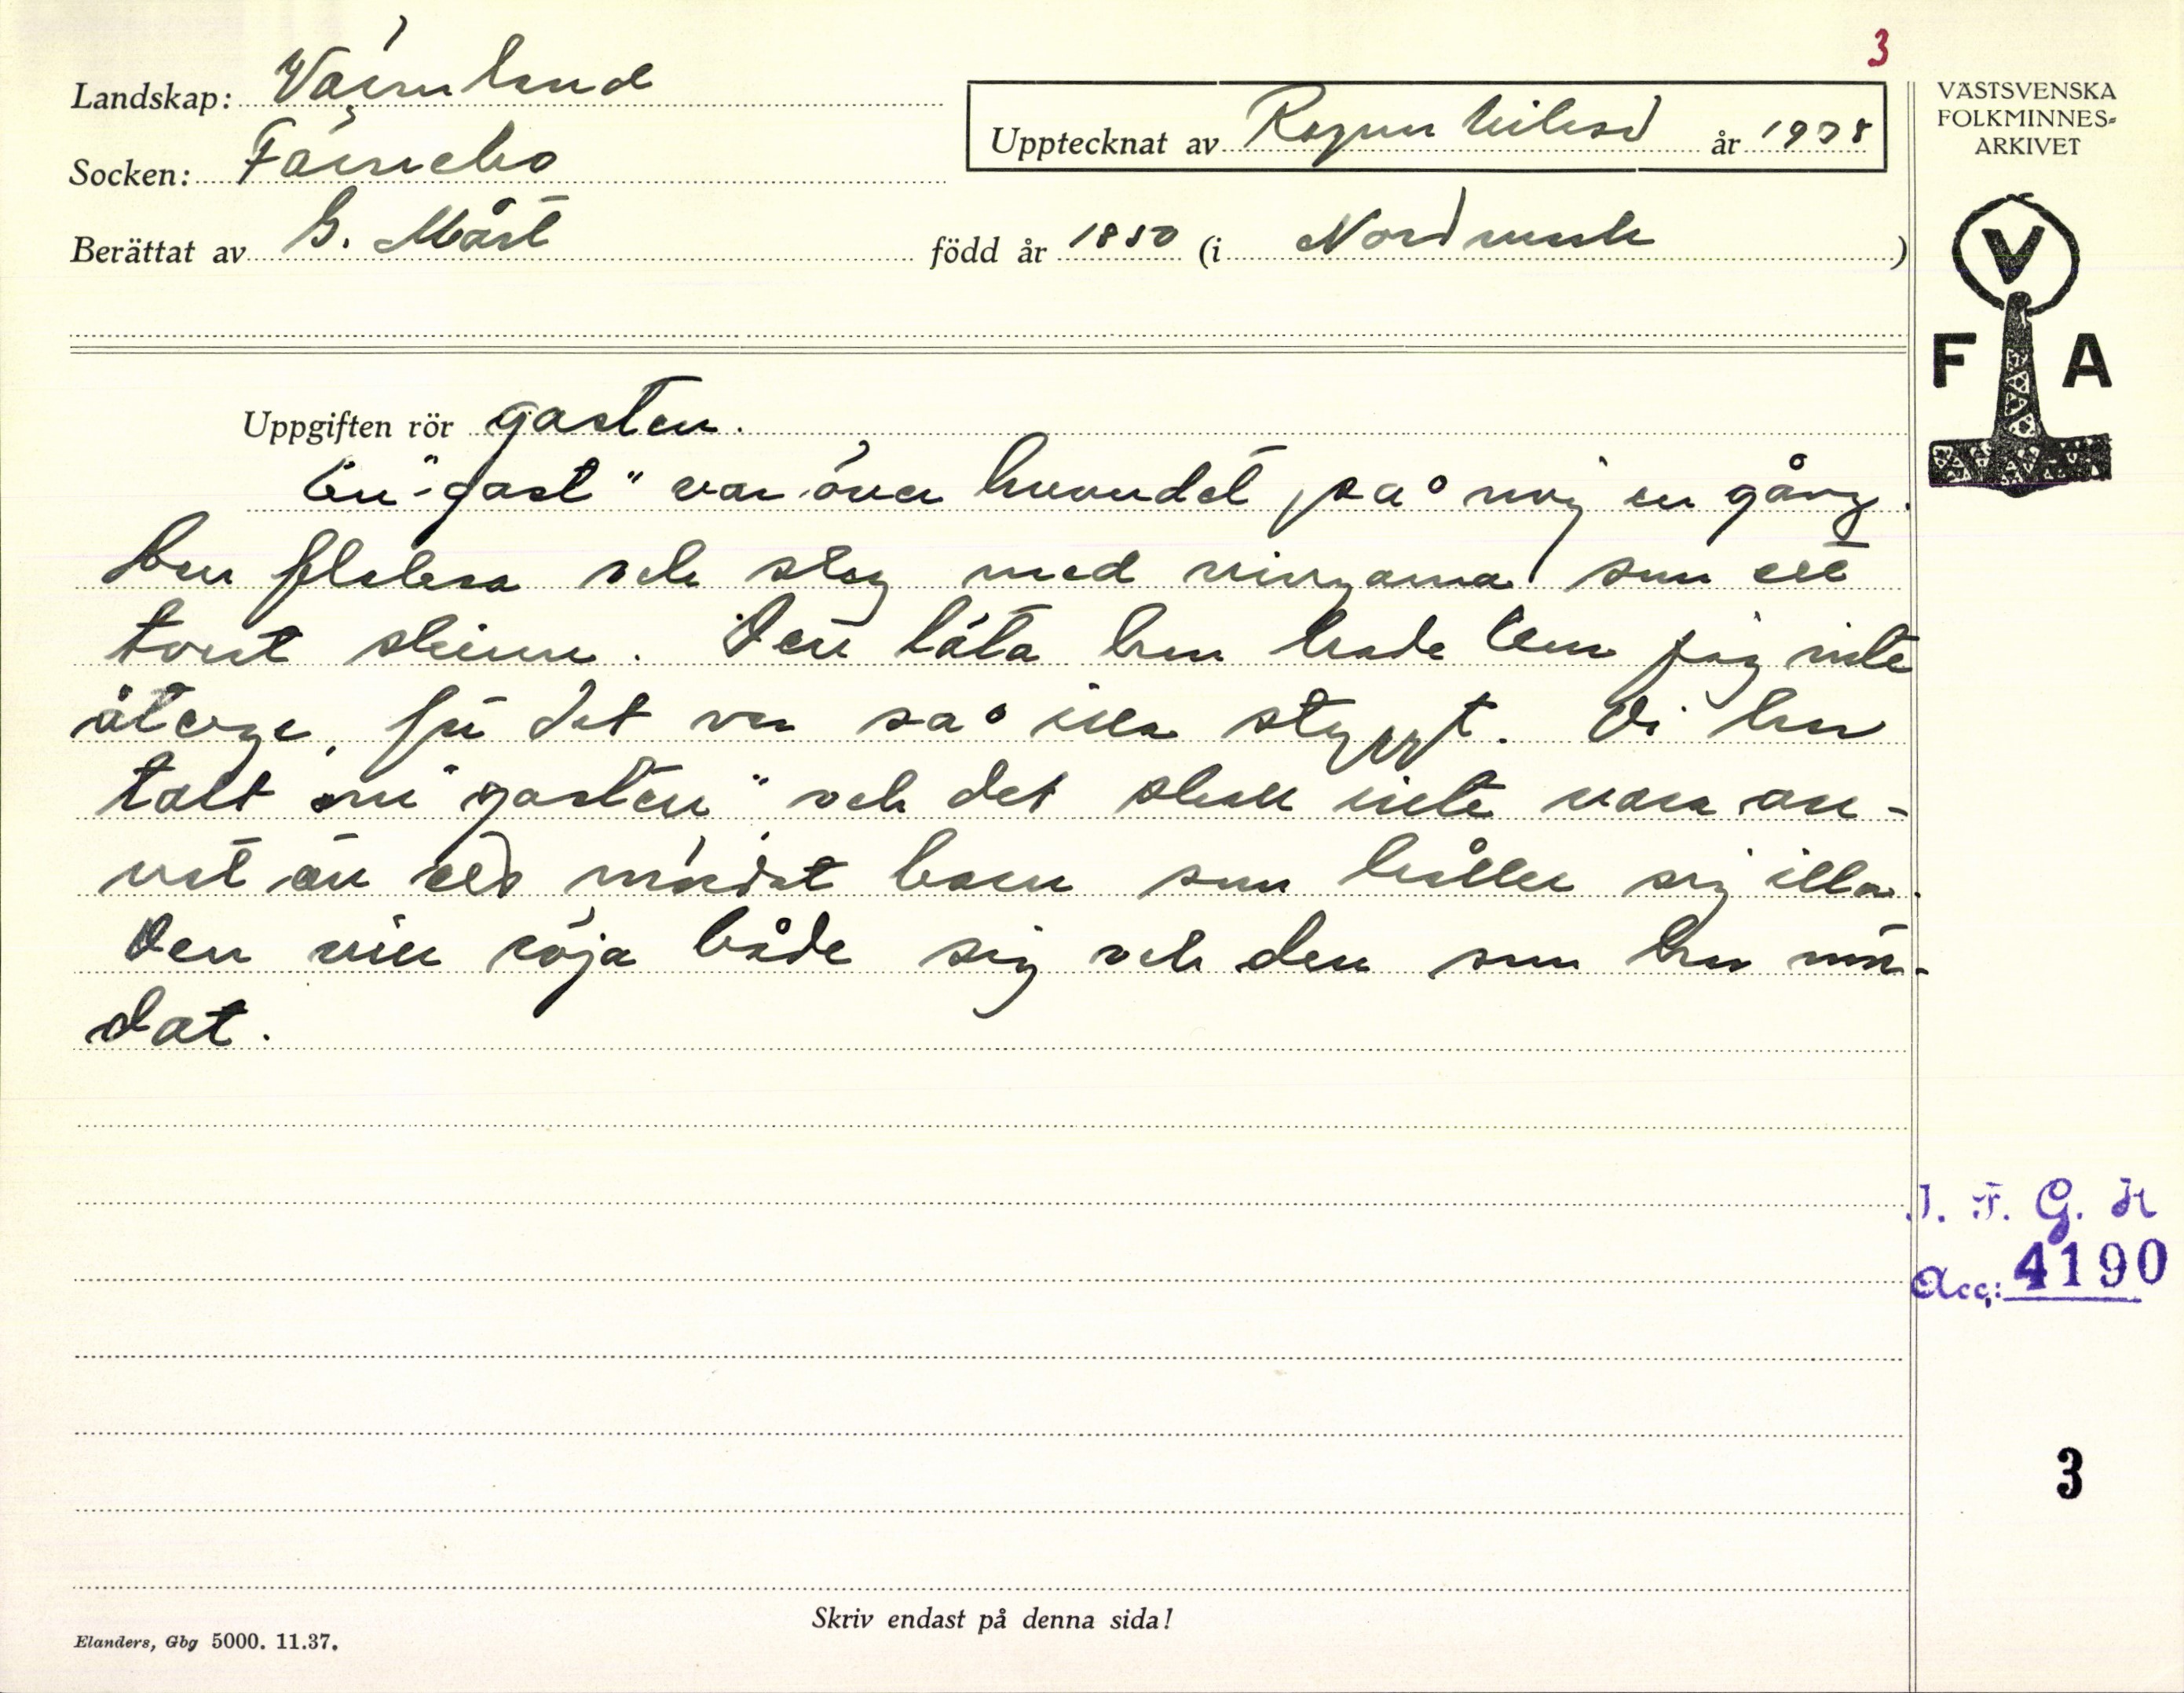 3
Landskap: Värmland
Socken: Färnebo
Upptecknat av Ragnar Nilsson år 1938
Berättat av G. Måst född år 1850 (i Nordmark)
VÄSTSVENSKA
FOLKMINNES-
ARKIVET
V
F A
Uppgiften rör gasten.
En "gast" var över huvudet på mig en gång.
Den flaksa och slog med vingarna som ett
tort skinn. Den låta han hade kan jag inte
återge, för det var så illa styggt. Di har
talt om "gasten" och det skall inte vara an-
nat än ett mördat barn som håller sig illa.
Den vill röja både sig och den som har mör-
dat.
I. F. G. H
Acc: 4190
3
Skriv endast på denna sida!
Elanders, Gbg 5000. 11.37.